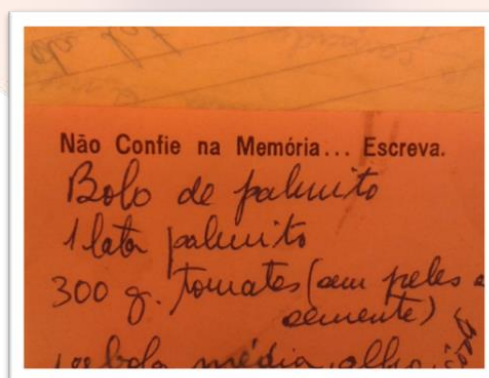 Não Confie na Memória... Escreva.
Bolo de palmito
1 lata palmito
300 g. tomates (sem peles e
semente)
média,